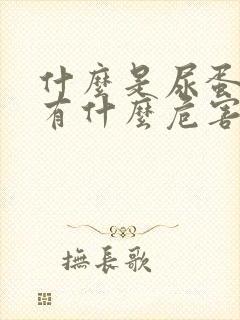 什麼是尿蛋
有什麼危害
撫長歌